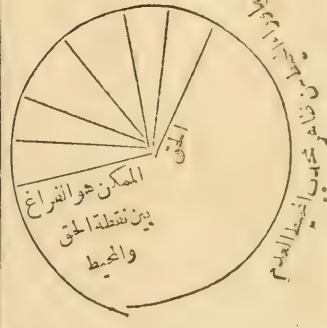 الحق
الممكن هو الفراغ
بين نقطة الحق
والمحيط
من ظاهر المحيط العدم